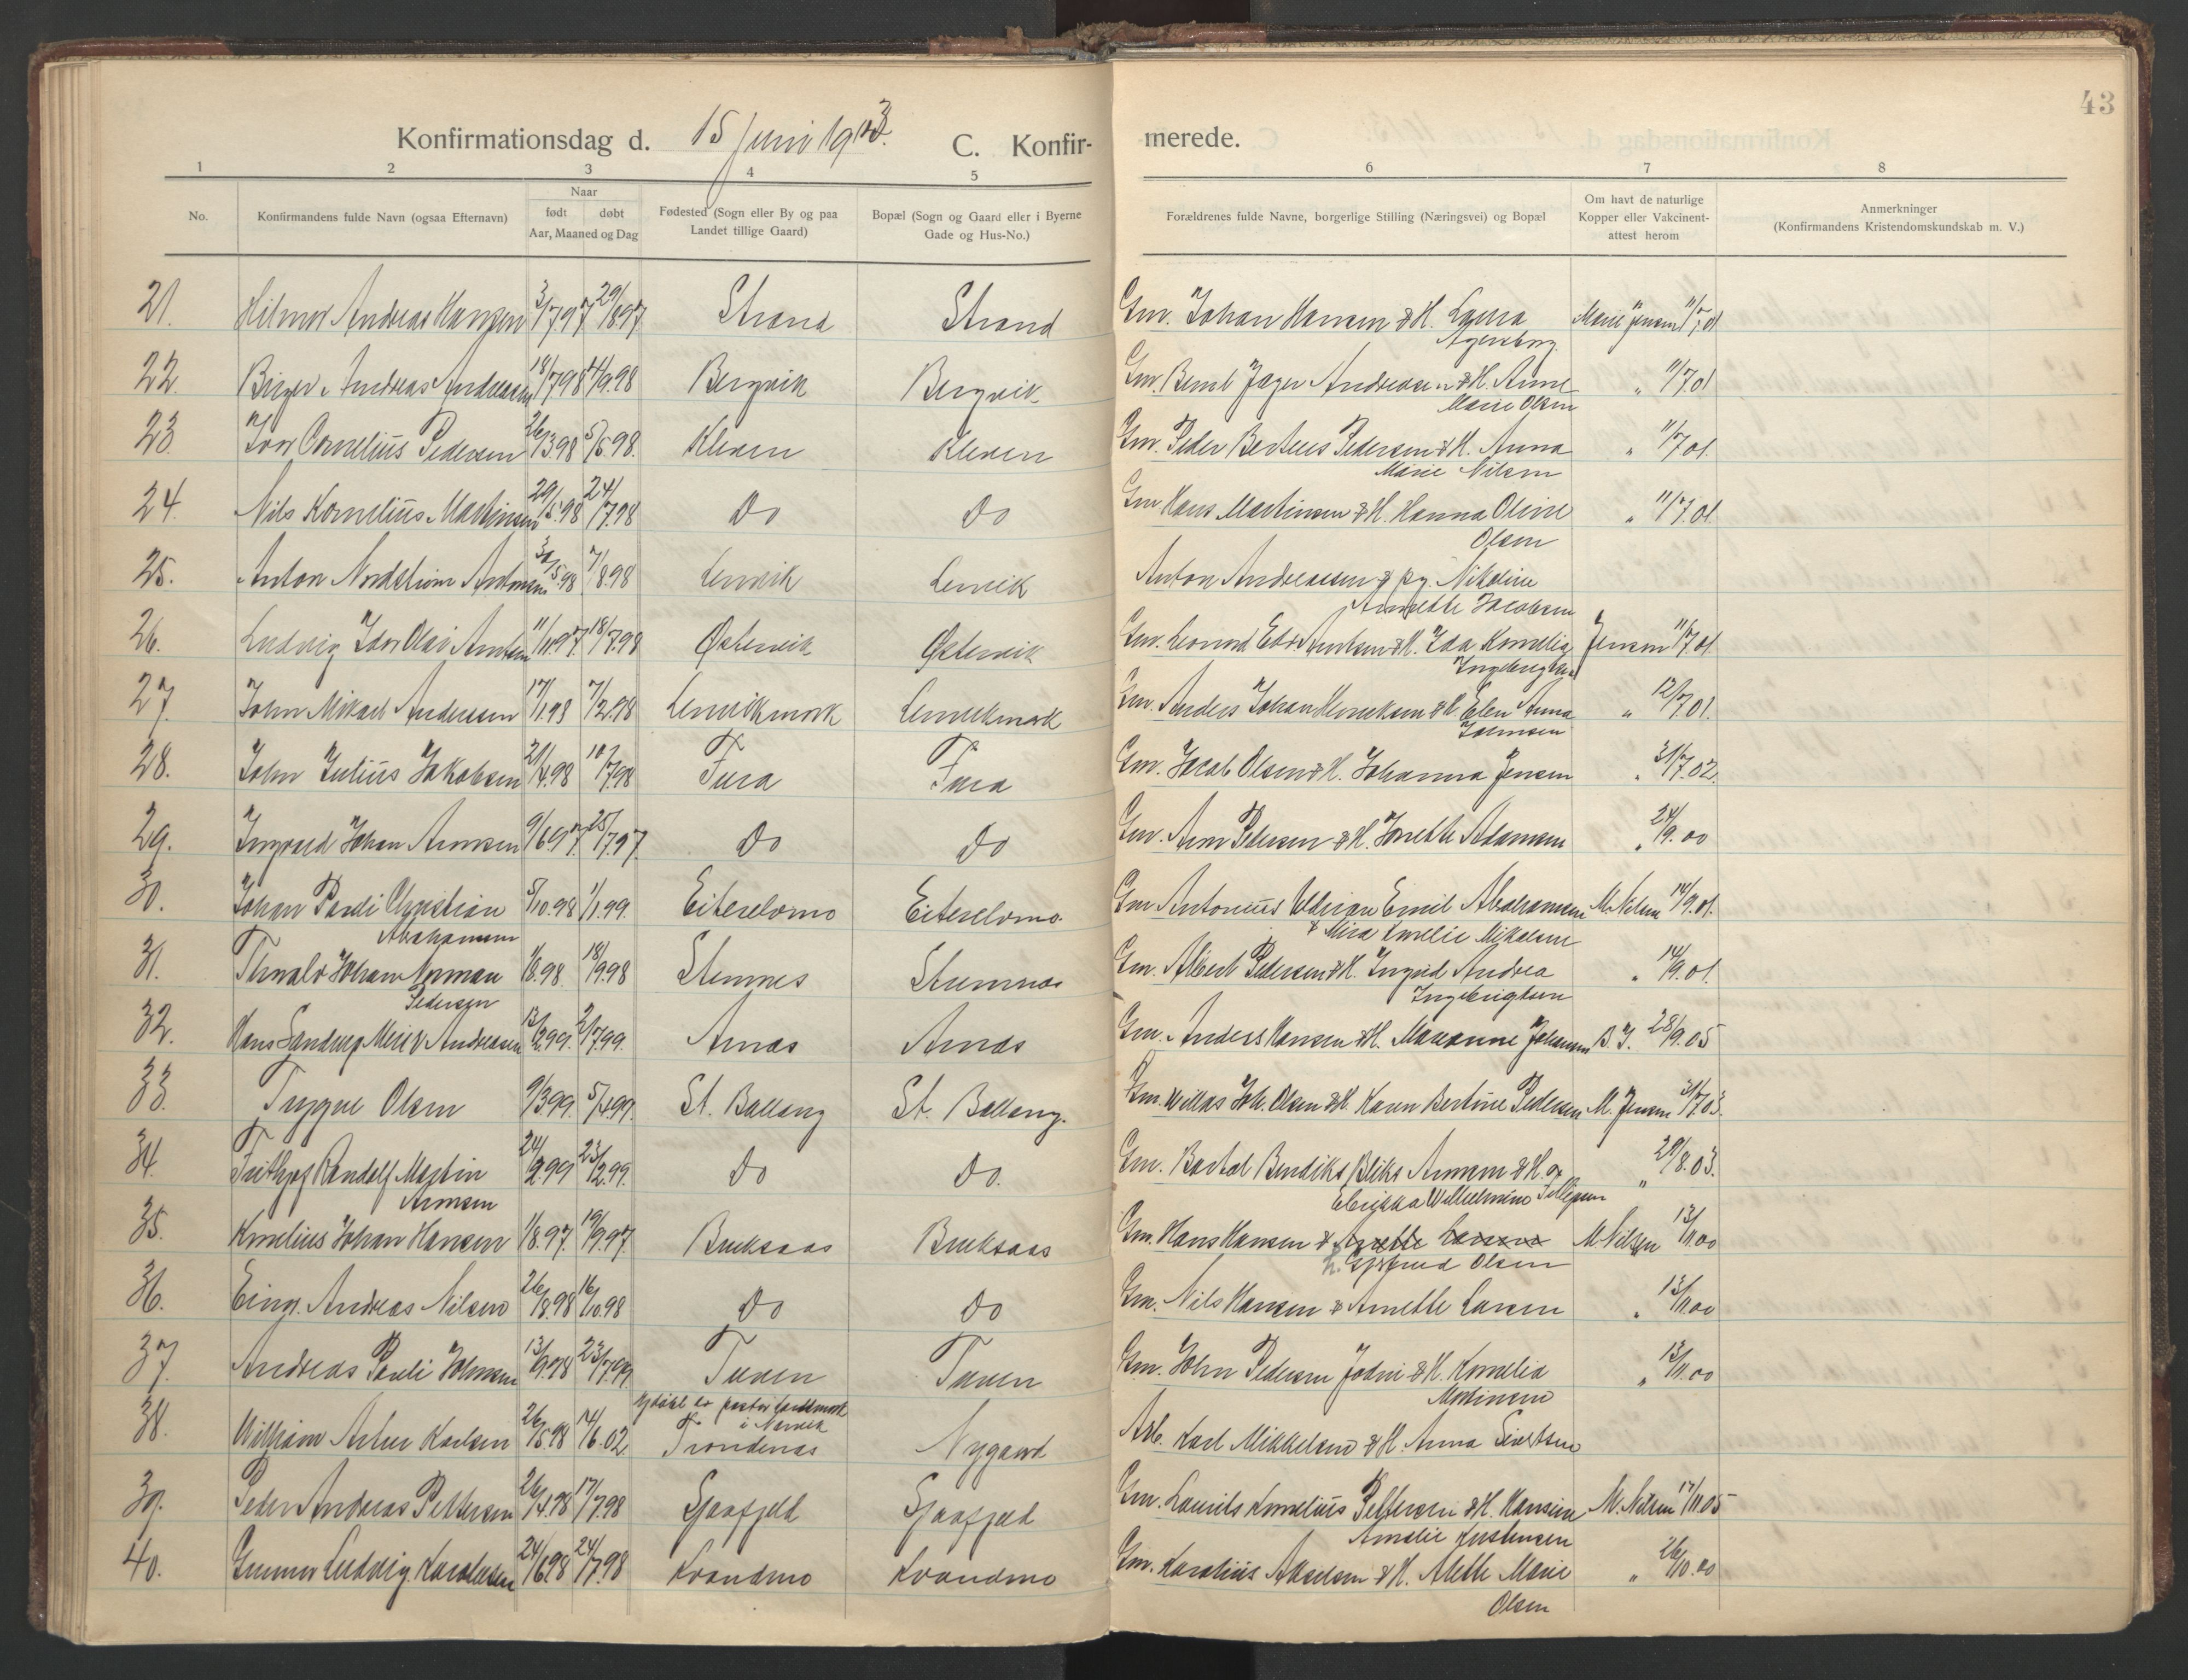 43
Konfirmationsdag d. 15 Juni 1913. C. Konfir- merede.
1 2 3 4 5 6 7 8
No.
Konfirmandens fulde Navn (ogsaa Efternavn)
Naar
født døbt
Aar, Maaned og Dag
Fødested (Sogn eller By og paa
Landet tillige Gaard)
Bopæl (Sogn og Gaard eller i Byerne
Gade og Hus-No.)
Forældrenes fulde Navne, borgerlige Stilling (Næringsvei) og Bopæl
Om havt de naturlige
Kopper eller Vakcinent-
attest herom
Anmerkninger
(Konfirmandens Kristendomskundskab m. V.)
21. Hilmar Andreas Hansen 3/7 97 29/8 97 Strand Strand Gm. Johan Hansen & H. Laura Marie Jensen 11/7 01
22. Birger Andreas Andreassen 18/7 98 4/9 98 Bergvik Bergvik Gm. Bernt Jæger Andreasen & H. Anne " 11/7 01
Marie Olsen
23. Ivar Cornelius Pedersen 26/3 98 5/6 98. Kleven Kleven Gm. Peder Berteus Pedersen & H. Anna " 11/7 01.
Marie Nilsen
24. Nils Kornelius Martinsen 29/5 98 24/7 98 Do Do Gm Hans Martinsen & H. Hanna Oline " 11/7 01
Olsen
25. Anton Nordstrøm Antonsen 30/5 98 7/8 98 Lenvik Lenvik Anton Andreassen & pg. Nikoline
Annette Jacobsen
26. Ludvig Idar Olai Arntsen 11/11 97 18/7 98 Østervik Østervik Gm. Leonard Arntsen & H. Ida Kornelia Jensen 11/7 01
Ingebrigtsen
27. John Mikael Anderssen 17/1 98 7/2 98 Lenvikmark Lenvikmark Gm. Anders Johan Henriksen & H. Elen Anna " 12/7 01.
Johnsen
28. John Julius Jakobsen 21/4 98 10/7 98 Fura Fura Gm. Jacob Olsen & H. Johanna Jensen " 31/7 02.
29. Ingvald Johan Arnesen 9/6 97 25/7 97 Do Do Gm. Arne Pedersen & H. Jonette Adamsen " 24/9. 00
30. Johan Pauli Christian 5/10. 98 1/1. 99. Eiterelvmo Eiterelvmo Gm Antonius Adrian Emil Abrahamsen M. Nilsen 14/9. 01.
Abrahamsen & Mina Emelie Mikalsen
31. Thorvald Johan Norman 1/8. 98. 18/9 98 Stemnes Stemnes Gm. Albert Pedersen & H. Ingrid Andrea " 14/9. 01
Pedersen Ingebrigtsen
32. Hans Sandrup Meier Andreasen 13/2 99. 2/7 99. Arnes Arnes Gm. Anders Hansen & H. Marianne Johansen B. J. 28/9. 05
33. Trygve Olsen 9/3 99. 5/4 99. St. Ballang St. Ballang. Gm. Willas Joh. Olsen & H. Karen Bertine Pedersen M. Jensen 31/7 03.
34. Frithjof Randolf Martin 24/2 99 23/12 99. Do Do. Gm. Bartol Bendiks Bliks Arnesen & H. " 29/8. 03.
Arnesen Wilhelmine
35. Kornelius Johan Hansen 1/8. 97. 19/9. 97 Bruksaas Bruksaas Gm. Hans Hansen & Anette Larsen M. Nilsen 13/11. 00
H. Gjertrud Olsen
36. Einar Andreas Nilsen 26/8 98 16/10 98 Do Do Gm. Nils Hansen & Anette Larsen " 13/11. 00
37. Andreas Pauli Johnsen 13/9 98 23/7 99. Turen Turen Gm. John Pedersen & H. Kornelia " 13/11. 00
Martinsen
38. William Artur Karlsen 26/5 98 14/6. 02 Trondenas Nygaard Arb. Karl Mikkelsen & H. Anna Sivertsen
i Narvik
39. Peder Andreas Pettersen 26/4. 98 17/7 98 Sjaafjeld Sjaafjeld Gm. Laurits Kornelius Pettersen & H. Hansine M. Nilsen 17/11. 05
Amalie Kristensen
40. Gunnar Ludvig Karoliusen 24/6 98 24/7. 98 Kvandmo Kvandmo Gm. Karolius Akselsen & H. Alette Marie " 26/10. 00
Olsen